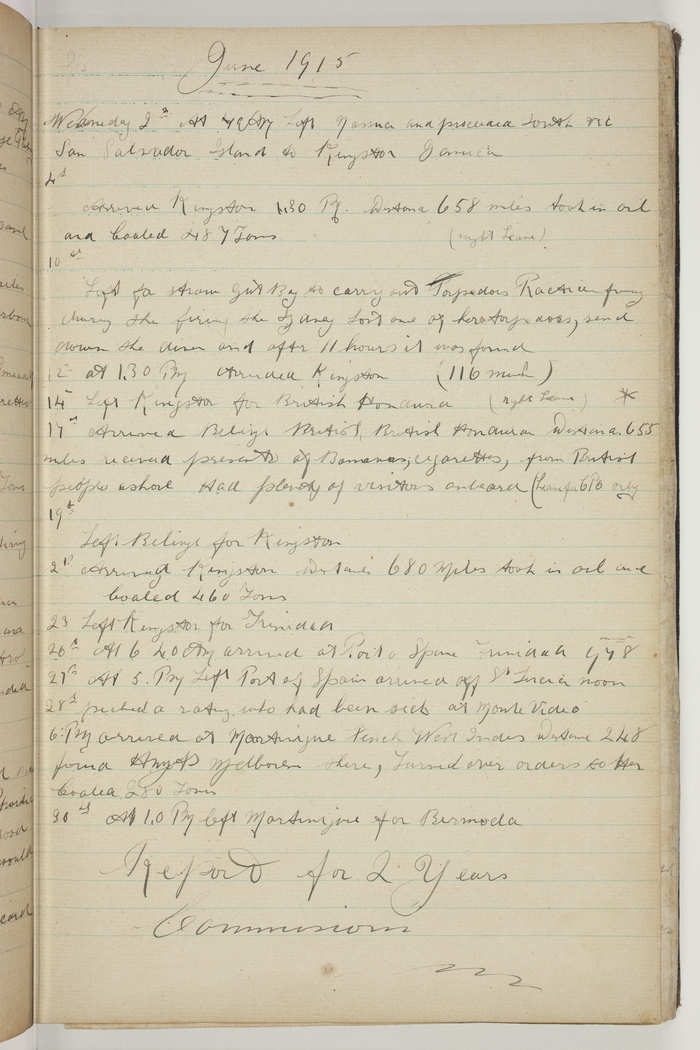 June 1915
Wednesday 2nd At 4 PM Left Nassau and proceeded South via
San Salvador Island to Kingston Jamaica
4th
Arrived Kingston 1.30 PM. Distance 658 miles took in oil
and Coaled 487 Tons (night Leave)
10th
Left for Strom Gut Bay to carry out Torpedoes Practice firing
during the firing the Sydney lost one of her torpedoes, send
down the diver and after 11 hours it was found
12th at 1.30 PM Arrived Kingston (116 miles)
14th Left Kingston for British Hondura (night Leave) *
17th Arrived Belize British, British Honduras Distance 655
miles received presents of Bananas, cigarettes, from British
people ashore Had plenty of visitors onboard (Leave for CPO only
19th
Left Belize for Kingston
21st Arrived Kingston Distance 680 Miles took in oil and
Coaled 460 Tons
23 Left Kingston for Trinidad
26th At 6 40 AM arrived at Port o Spain Trinidad 978
27th At 5. PM Left Port of Spain arrived off St Lucia noon
28th picked a rating who had been sick at Monte Video
6 PM arrived at Martinique French West Indies Distance 248
found HMAS Melbourne there, Turned over orders to Her
Coaled 280 Tons
30th At 1.0 PM left Martinique for Bermoda
Report for 2 Years
Commission